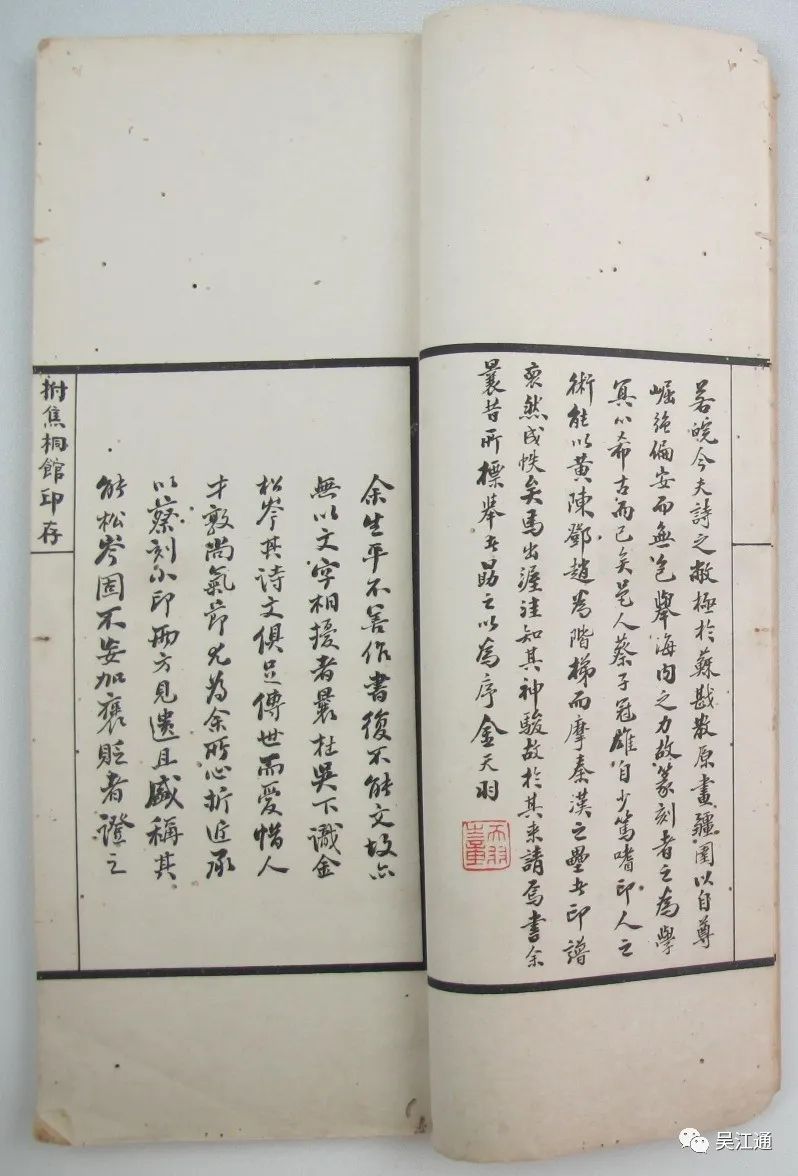 若皖今夫詩之敝極於蘇戡散原畫疆圉以自尊
崛強偏安而無包舉海内之力故篆刻者之為學
冥心希古而已矣邑人蔡子冠雄自少篤嗜印人之
術能以黄陳鄧趙為階梯而摩秦漢之壘其印譜
裒然成帙矣馬出渥洼知其神駿故於其來請焉書余
曩昔所標舉者勗之以為序金天羽
天羽
余生平不善作書復不能文故亦
無以文字相擾者曩在吳下識金
松岑其詩文俱足傳世而愛惜人
才敦尚氣節尤為余所心折近承
以蔡刻小印兩方見遺且盛稱其
能松岑固不妄加襃貶者證之
拊焦桐館印存
吴江通